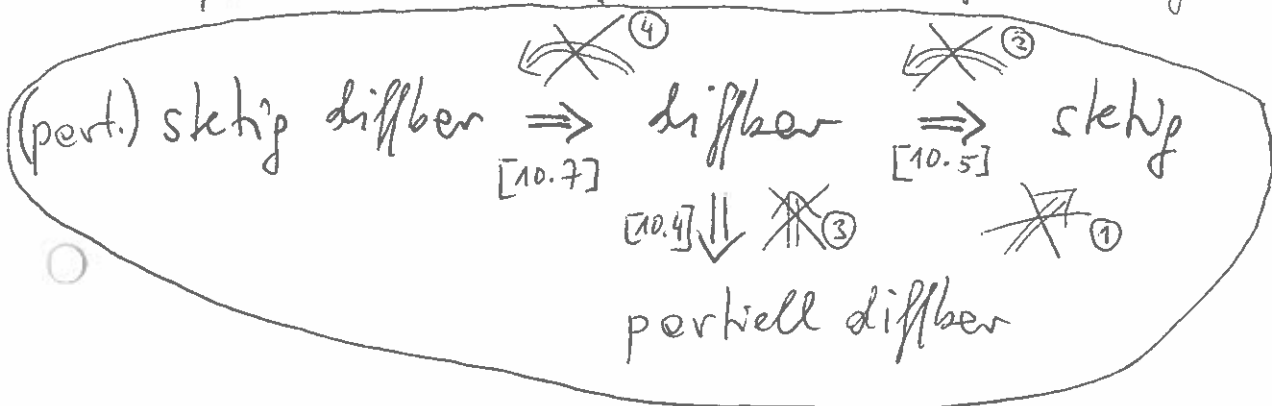 ④ ②
(part.) stetig diffbar ⇒ diffbar ⇒ stetig
[10.7] [10.5]
[10.4] ⇓ ③ ①
partiell diffbar